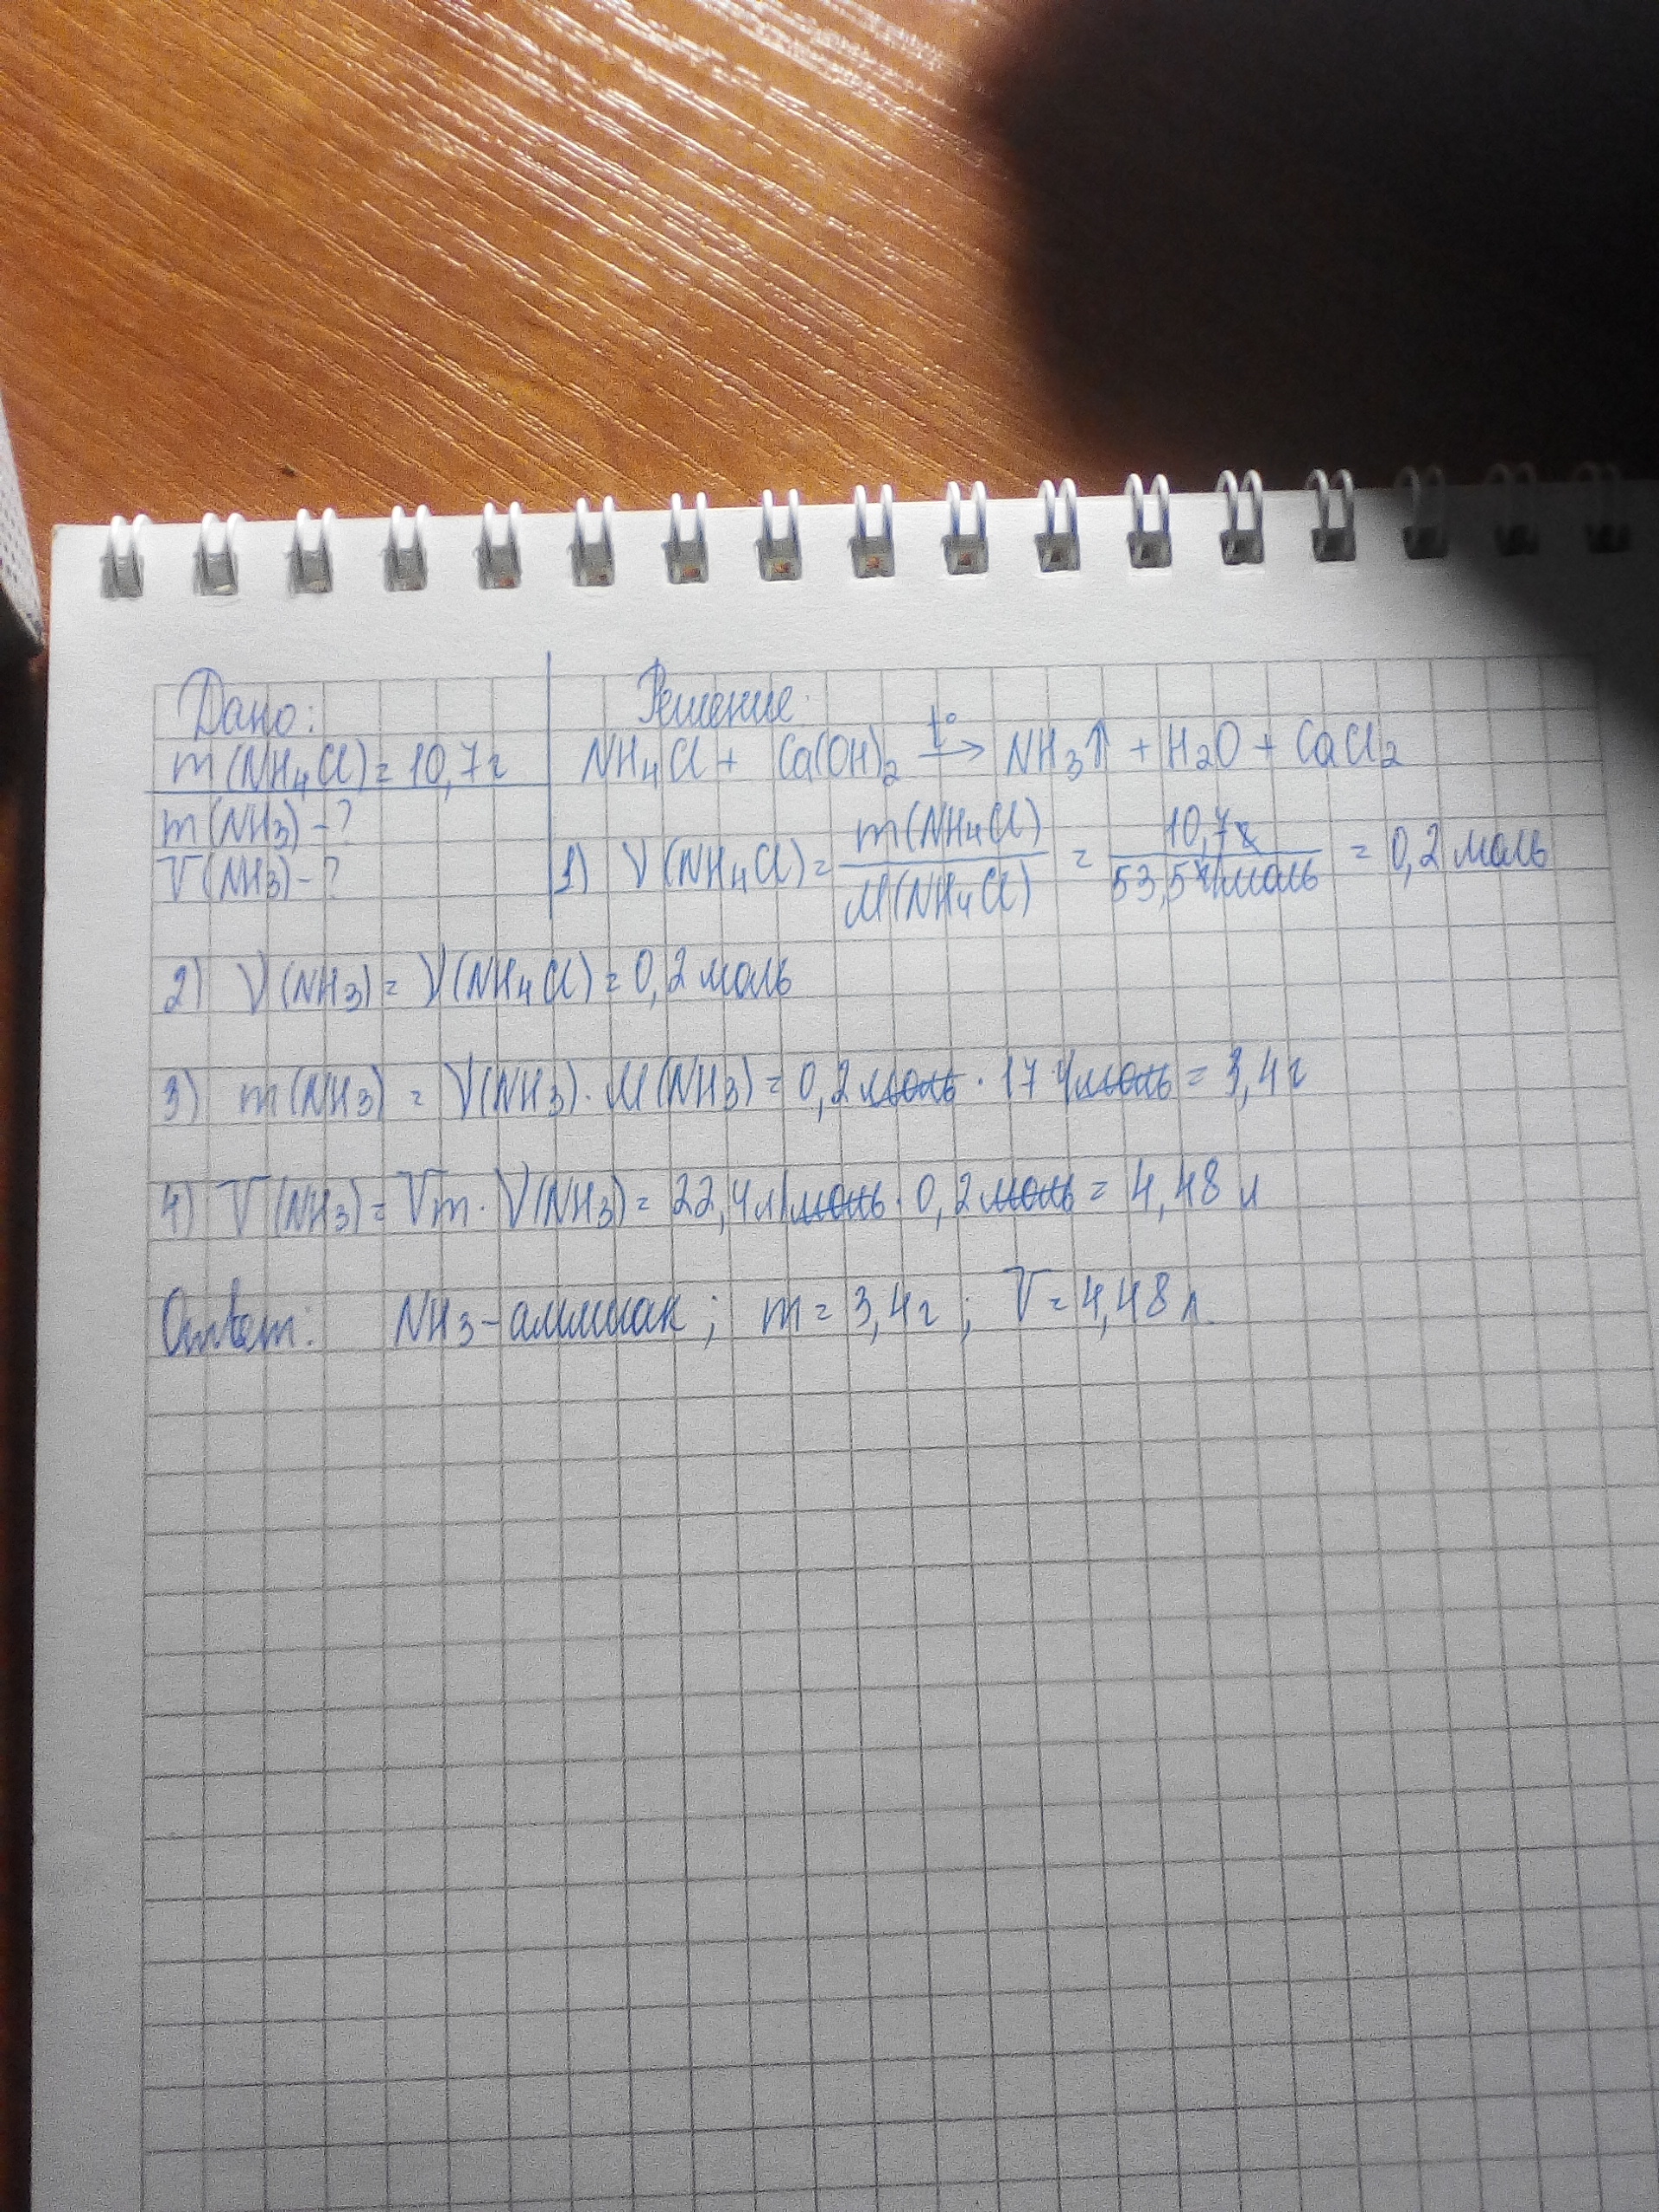 Дано:
m(NH₄Cl) = 10,7г
m(NH₃) - ?
V(NH₃) - ?
Решение:
NH₄Cl + Ca(OH)₂ t°→ NH₃↑ + H₂O + CaCl₂
1) ν(NH₄Cl) = m(NH₄Cl) / M(NH₄Cl) = 10,7г / 53,5г/моль = 0,2 моль
2) ν(NH₃) = ν(NH₄Cl) = 0,2 моль
3) m(NH₃) = ν(NH₃) · M(NH₃) = 0,2 моль · 17 г/моль = 3,4г
4) V(NH₃) = Vm · ν(NH₃) = 22,4 л/моль · 0,2 моль = 4,48 л
Ответ: NH₃ - аммиак; m = 3,4г; V = 4,48 л.